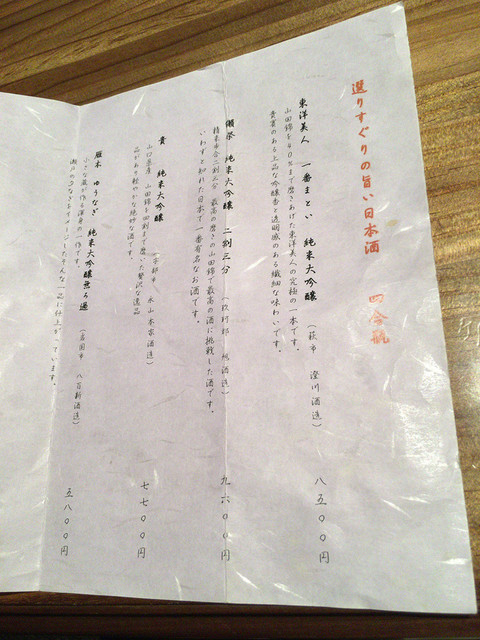 選りすぐりの旨い日本酒　四合瓶
東洋美人　一番まとい　純米大吟醸　（萩市　澄川酒造）　八五〇〇円
山田錦を40%まで磨きあげた東洋美人の究極の一本です。
貴賓のある上品な吟醸香と透明感のある繊細な味わいです。
獺祭　純米大吟醸　二割三分　（玖珂郡　旭酒造）　九六〇〇円
精米歩合二割三分　最高の磨きの山田錦、最高の酒に挑戦した酒です。
いわずと知れた日本で一番有名なお酒です。
貴　純米大吟醸　（宇部市　永山本家酒造）　七七〇〇円
山口県産　山田錦を四割まで磨いた贅沢な逸品
品があり軽やかな絶妙な酒です。
雁木　ゆうなぎ　純米大吟醸無ろ過　（岩国市　八百新酒造）　五八〇〇円
小さな蔵が作る渾身の一作です。
瀬戸の凪をイメージしたそんな一品に仕上がっています。